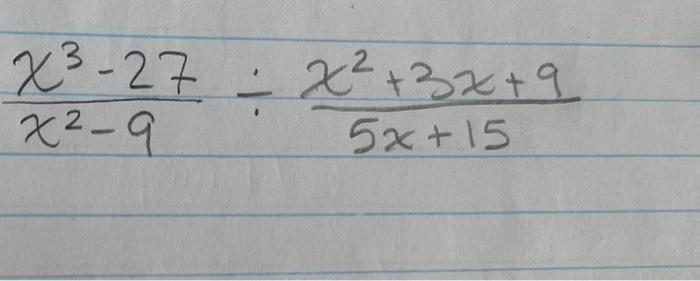 x³-27 / x²-9 ÷ x²+3x+9 / 5x+15